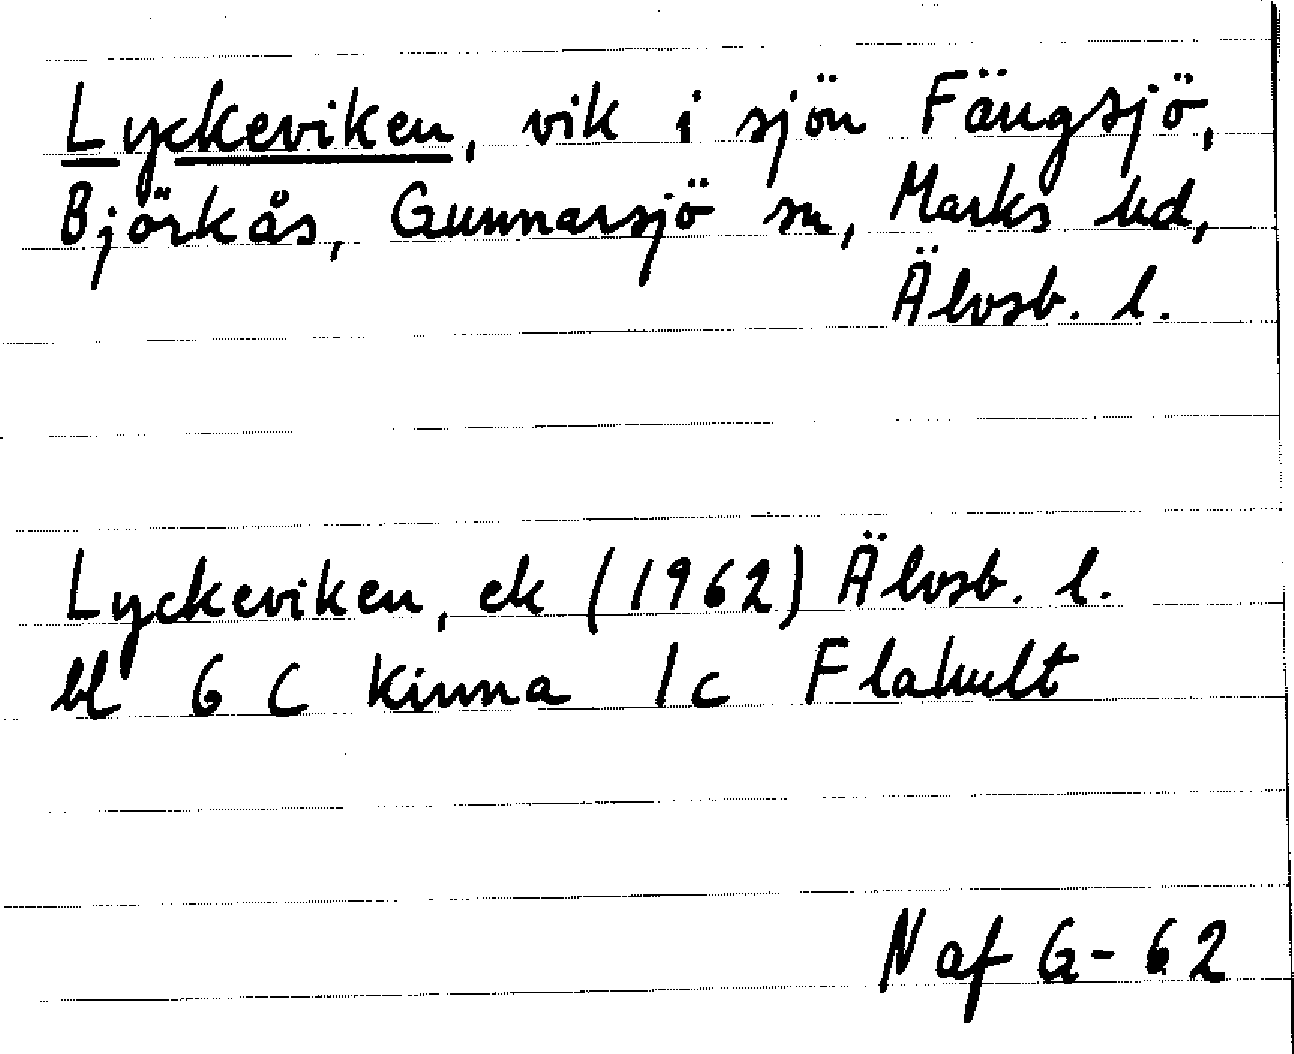 Lyckeviken, vik i sjön Fängsjö,
Björkås, Gunnarsjö sn, Marks hd,
Älvsb. l.
Lyckeviken, ek (1962) Älvsb. l.
bl 6 C Kinna 1c Flahult
N af G-62